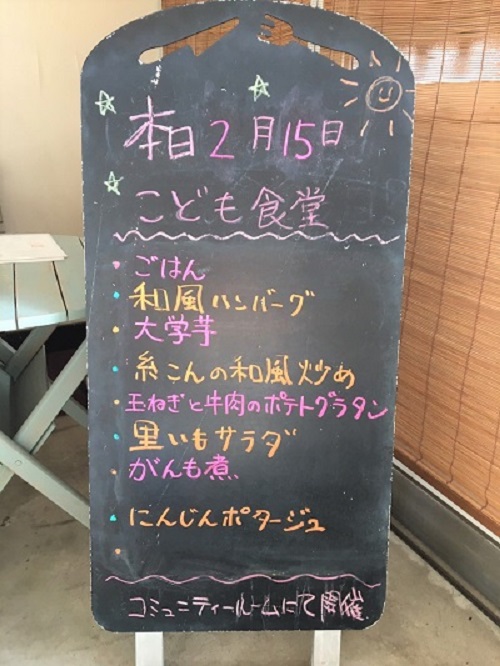 本日2月15日
こども食堂
ごはん
和風ハンバーグ
大学芋
糸こんの和風炒め
玉ねぎと牛肉のポテトグラタン
里いもサラダ
がんも煮
にんじんポタージュ
コミュニティールームにて開催